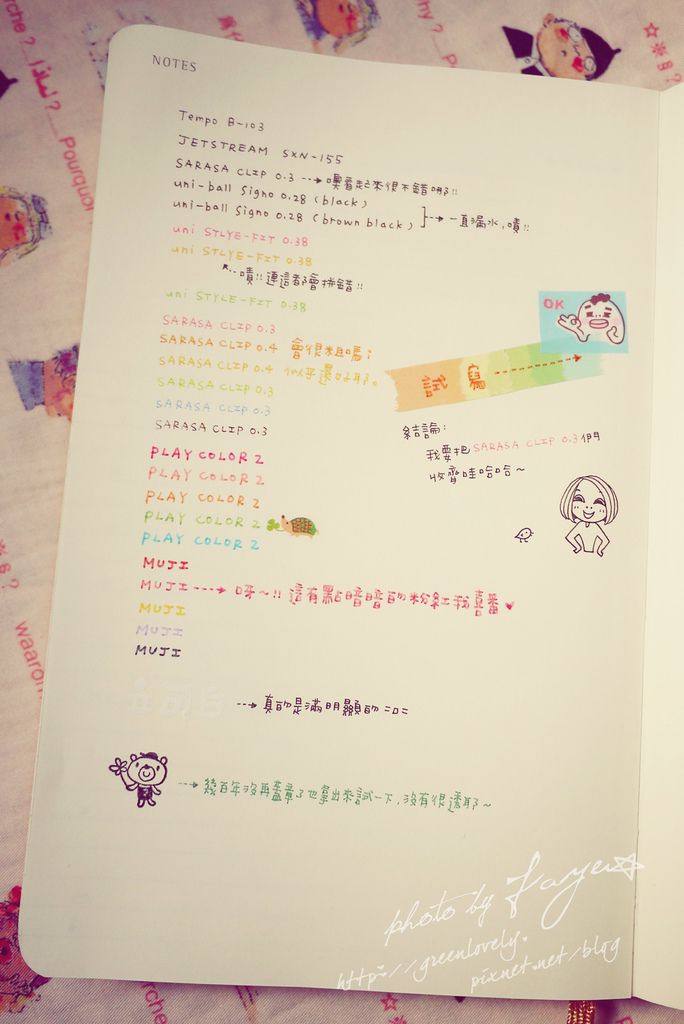 NOTES
Tempo B-103
JETSTREAM SXN-155
SARASA CLIP 0.3 --→ 噢看起來很不錯唷!!
uni-ball Signo 0.28 (black)
uni-ball Signo 0.28 (brown black) --→ 一直漏水,嘖!!
uni STLYE-FIT 0.38
uni STLYE-FIT 0.38
嘖!!連這都會拼錯!!
uni STYLE-FIT 0.38
OK
SARASA CLIP 0.3
SARASA CLIP 0.4 會很粗嗎?
SARASA CLIP 0.4 似乎還好耶。
試寫
SARASA CLIP 0.3
SARASA CLIP 0.3
SARASA CLIP 0.3
結論:
我要把SARASA CLIP 0.3們
收齊哇哈哈~
PLAY COLOR 2
PLAY COLOR 2
PLAY COLOR 2
PLAY COLOR 2
PLAY COLOR 2
MUJI
MUJI ----→ 呀~!! 這有點暗暗的粉紅我喜番♥
MUJI
MUJI
MUJI
--→ 真的是滿明顯的=口=
--→ 幾百年沒再蓋章了也拿出來試一下,沒有很透耶~
photo by Faye☆
http://greenlovely.
pixnet.net/blog
arche?
Pourquoi
hy?
waarom
rche?